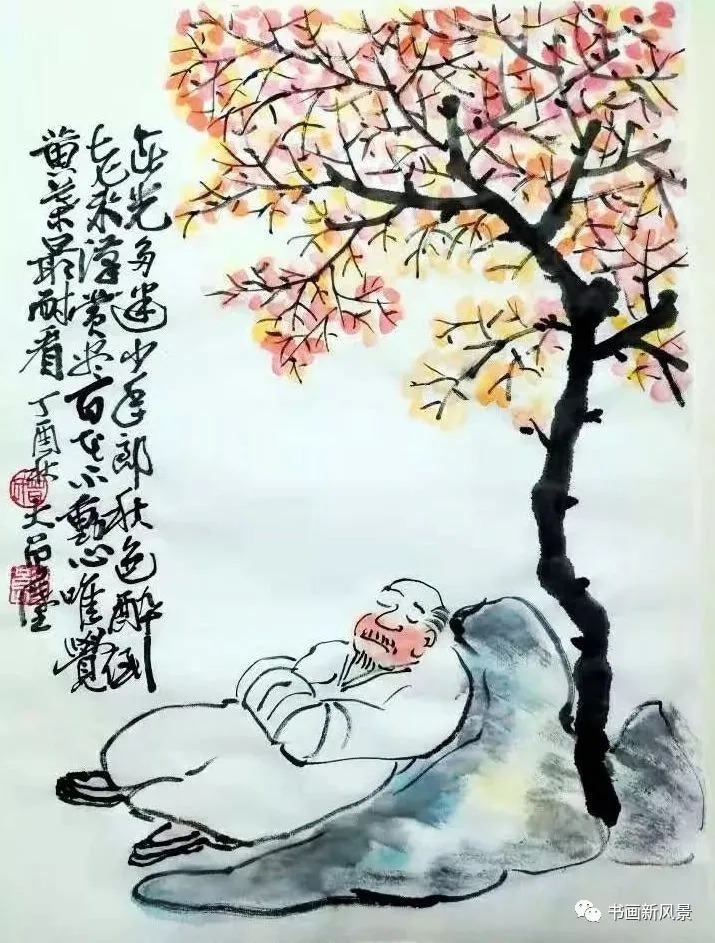 春光多迷少年郎秋色醉倒
老来漢赏尽百花不動心唯覺
黄葉最耐看
丁酉秋
书画新风景